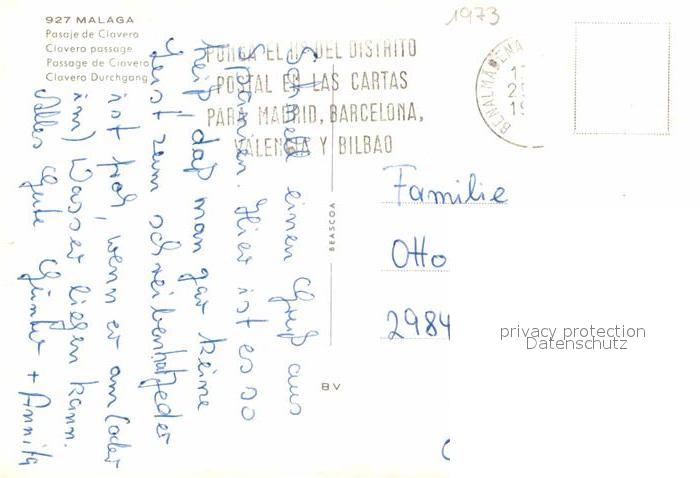 1973
927 MALAGA
Pasaje de Clavero
Clavero passage
Passage de Clavero
Clavero Durchgang
PONGA EL N. DEL DISTRITO
POSTAL EN LAS CARTAS
PARA MADRID, BARCELONA,
VALENCIA Y BILBAO
BENALMADENA
Schnell einen Gruß aus
Spanien. Hier ist es so
heiß, daß man gar keine
Lust zum schreiben hat. Jeder
ist froh, wenn er am (oder
im) Wasser liegen kann.
Alles Gute Günter + Annita
BEASCOA
BV
Familie
Otto
2984
privacy protection
Datenschutz